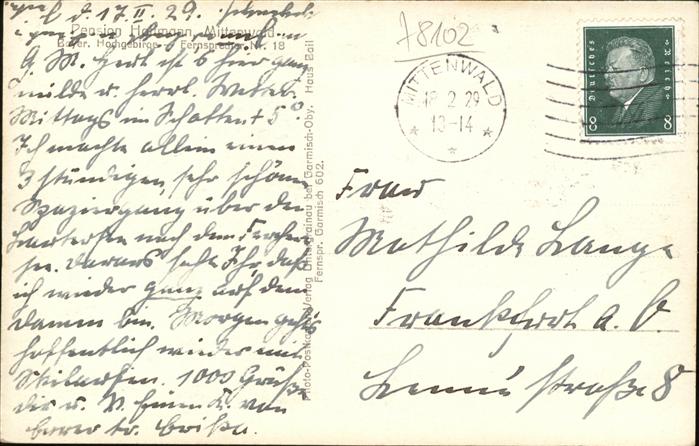 d. 17. II. 29.
Pension Hofmann, Mittenwald
Bayer. Hochgebirge Fernsprecher Nr. 18
ist es hier ganz
milde u. herrl. Wetter.
Mittags im Schatten 5°.
Ich machte allein einen
3 stündigen, sehr schönen
Spaziergang über den
Lautersee nach dem Ferchen
see. Daraus seht Ihr, daß
ich wieder ganz auf dem
Damm bin. Morgen geht's
hoffentlich wieder
1000 Grüße
Dir u. von
Photo-Postkartenverlag Untergrainau bei Garmisch-Oby. Haus Bail
Fernspr. Garmisch 602.
A8102
MITTENWALD
18 2 29
13-14
Deutsches Reich
8 8
Frau
Mathilde Lange
Frankfurt a. O.
Lenné straße 8